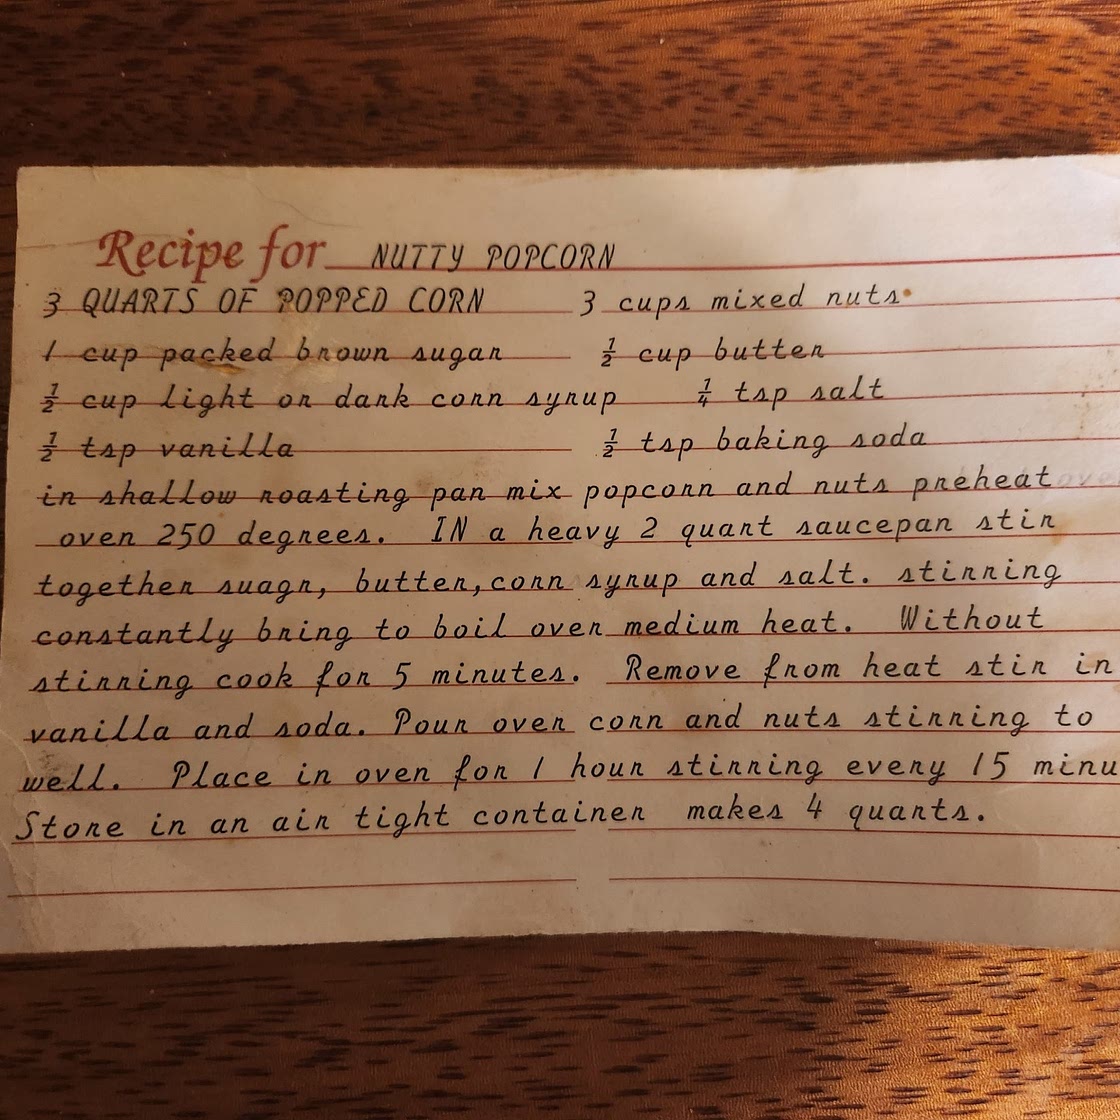 Recipe for NUTTY POPCORN
3 QUARTS OF POPPED CORN 3 cups mixed nuts
1 cup packed brown sugar ½ cup butter
½ cup light or dark corn syrup ¼ tsp salt
½ tsp vanilla ½ tsp baking soda
in shallow roasting pan mix popcorn and nuts preheat
oven 250 degrees. IN a heavy 2 quart saucepan stir
together suagr, butter, corn syrup and salt. stirring
constantly bring to boil over medium heat. Without
stirring cook for 5 minutes. Remove from heat stir in
vanilla and soda. Pour over corn and nuts stirring to
well. Place in oven for 1 hour stirring every 15 minu
Store in an air tight container makes 4 quarts.